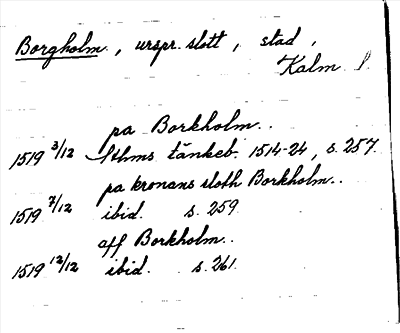 Borgholm, urspr. slott, stad,
Kalm. l.
pa Borkholm..
1519 3/12 Sthms tänkeb. 1514-24, s. 257.
pa kronans sloth Borkholm..
1519 7/12 ibid. s. 259
aff Borkholm..
1519 12/12 ibid. s. 261.